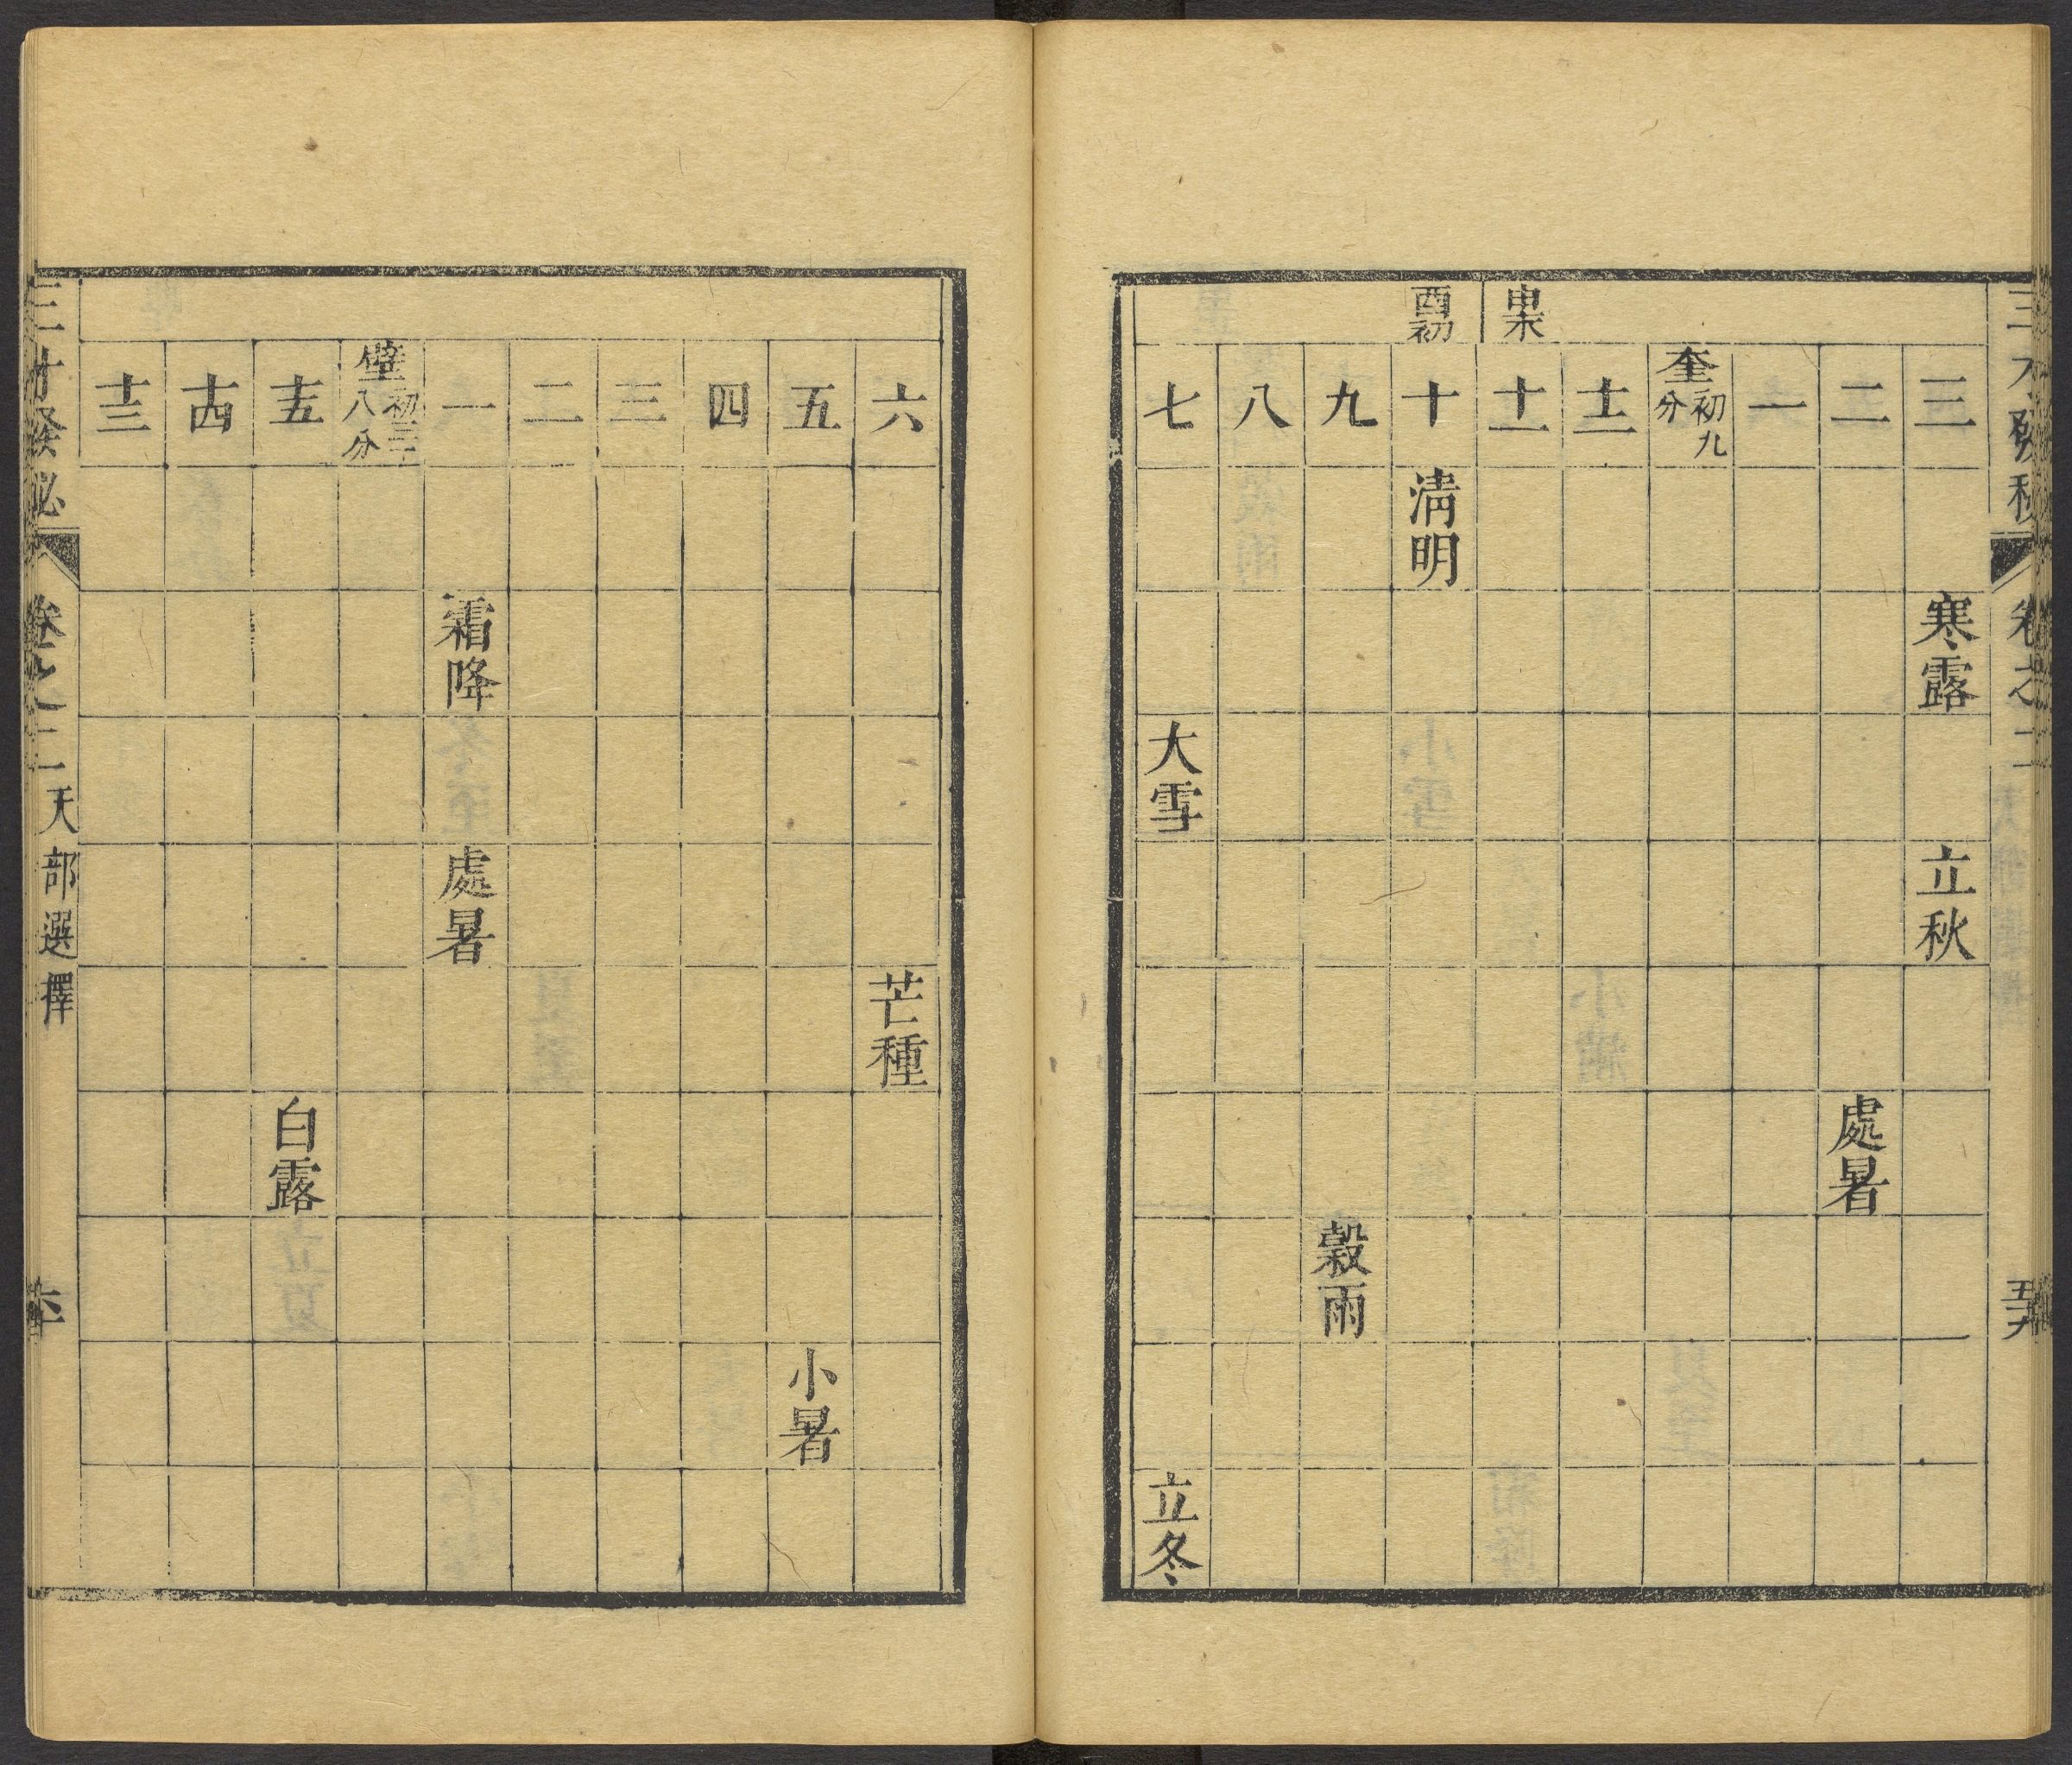 三才發秘 卷之二 五十九
三 寒露 立秋
二 處暑
一
奎初九分
十二
申末 十一
酉初 十 清明
九 穀雨
八
七 大雪 立冬
六 芒種
五 小暑
四
三
二
一 霜降 處暑
壁初三十八分
十五 白露
十四
十三
三才發秘 卷之二 天部選擇 六十